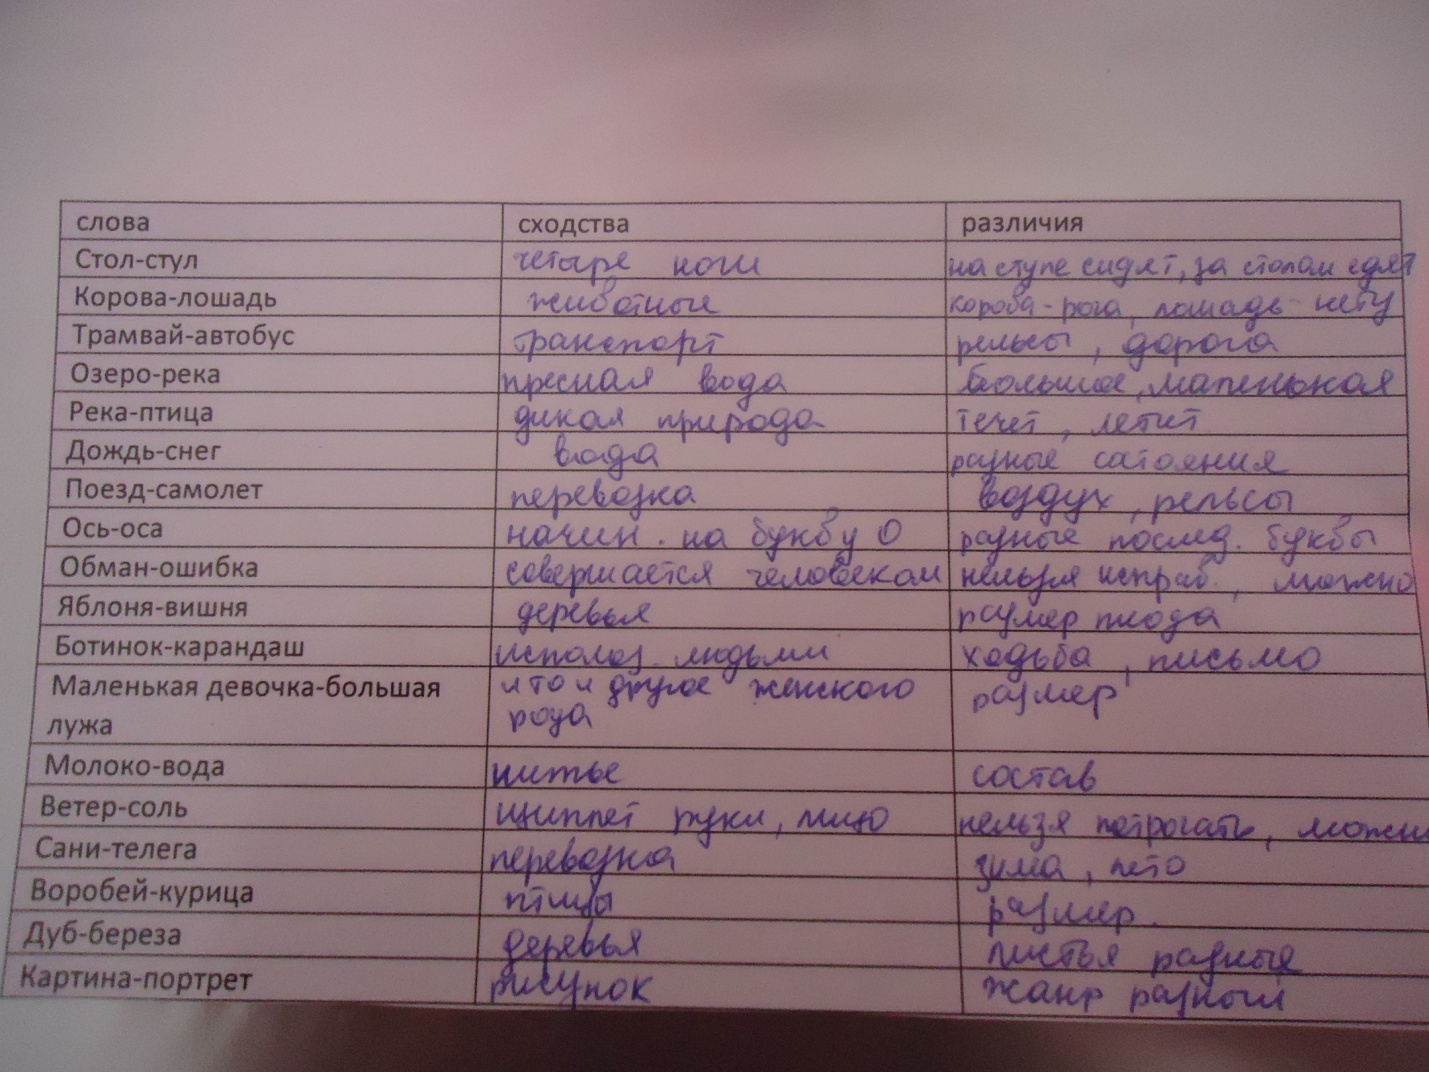 слова сходства различия
Стол-стул четыре ноги на стуле сидят, за столам едят
Корова-лошадь животные корова-рога, лошадь-нету
Трамвай-автобус транспорт рельсы, дорога
Озеро-река пресная вода большое, маленькая
Река-птица дикая природа течет, летит
Дождь-снег вода разные сатояния
Поезд-самолет перевозка воздух, рельсы
Ось-оса начин. на букву О разные послед. буквы
Обман-ошибка совершается человеком нельзя исправ., можно
Яблоня-вишня деревья размер плода
Ботинок-карандаш использ. людьми ходьба, письмо
Маленькая девочка-большая и то и другое женского размер
лужа рода
Молоко-вода питье состав
Ветер-соль щиплет руки, лицо нельзя потрогать, можно
Сани-телега перевозка зима, лето
Воробей-курица птицы размер.
Дуб-береза деревья листья разные
Картина-портрет рисунок жанр разный